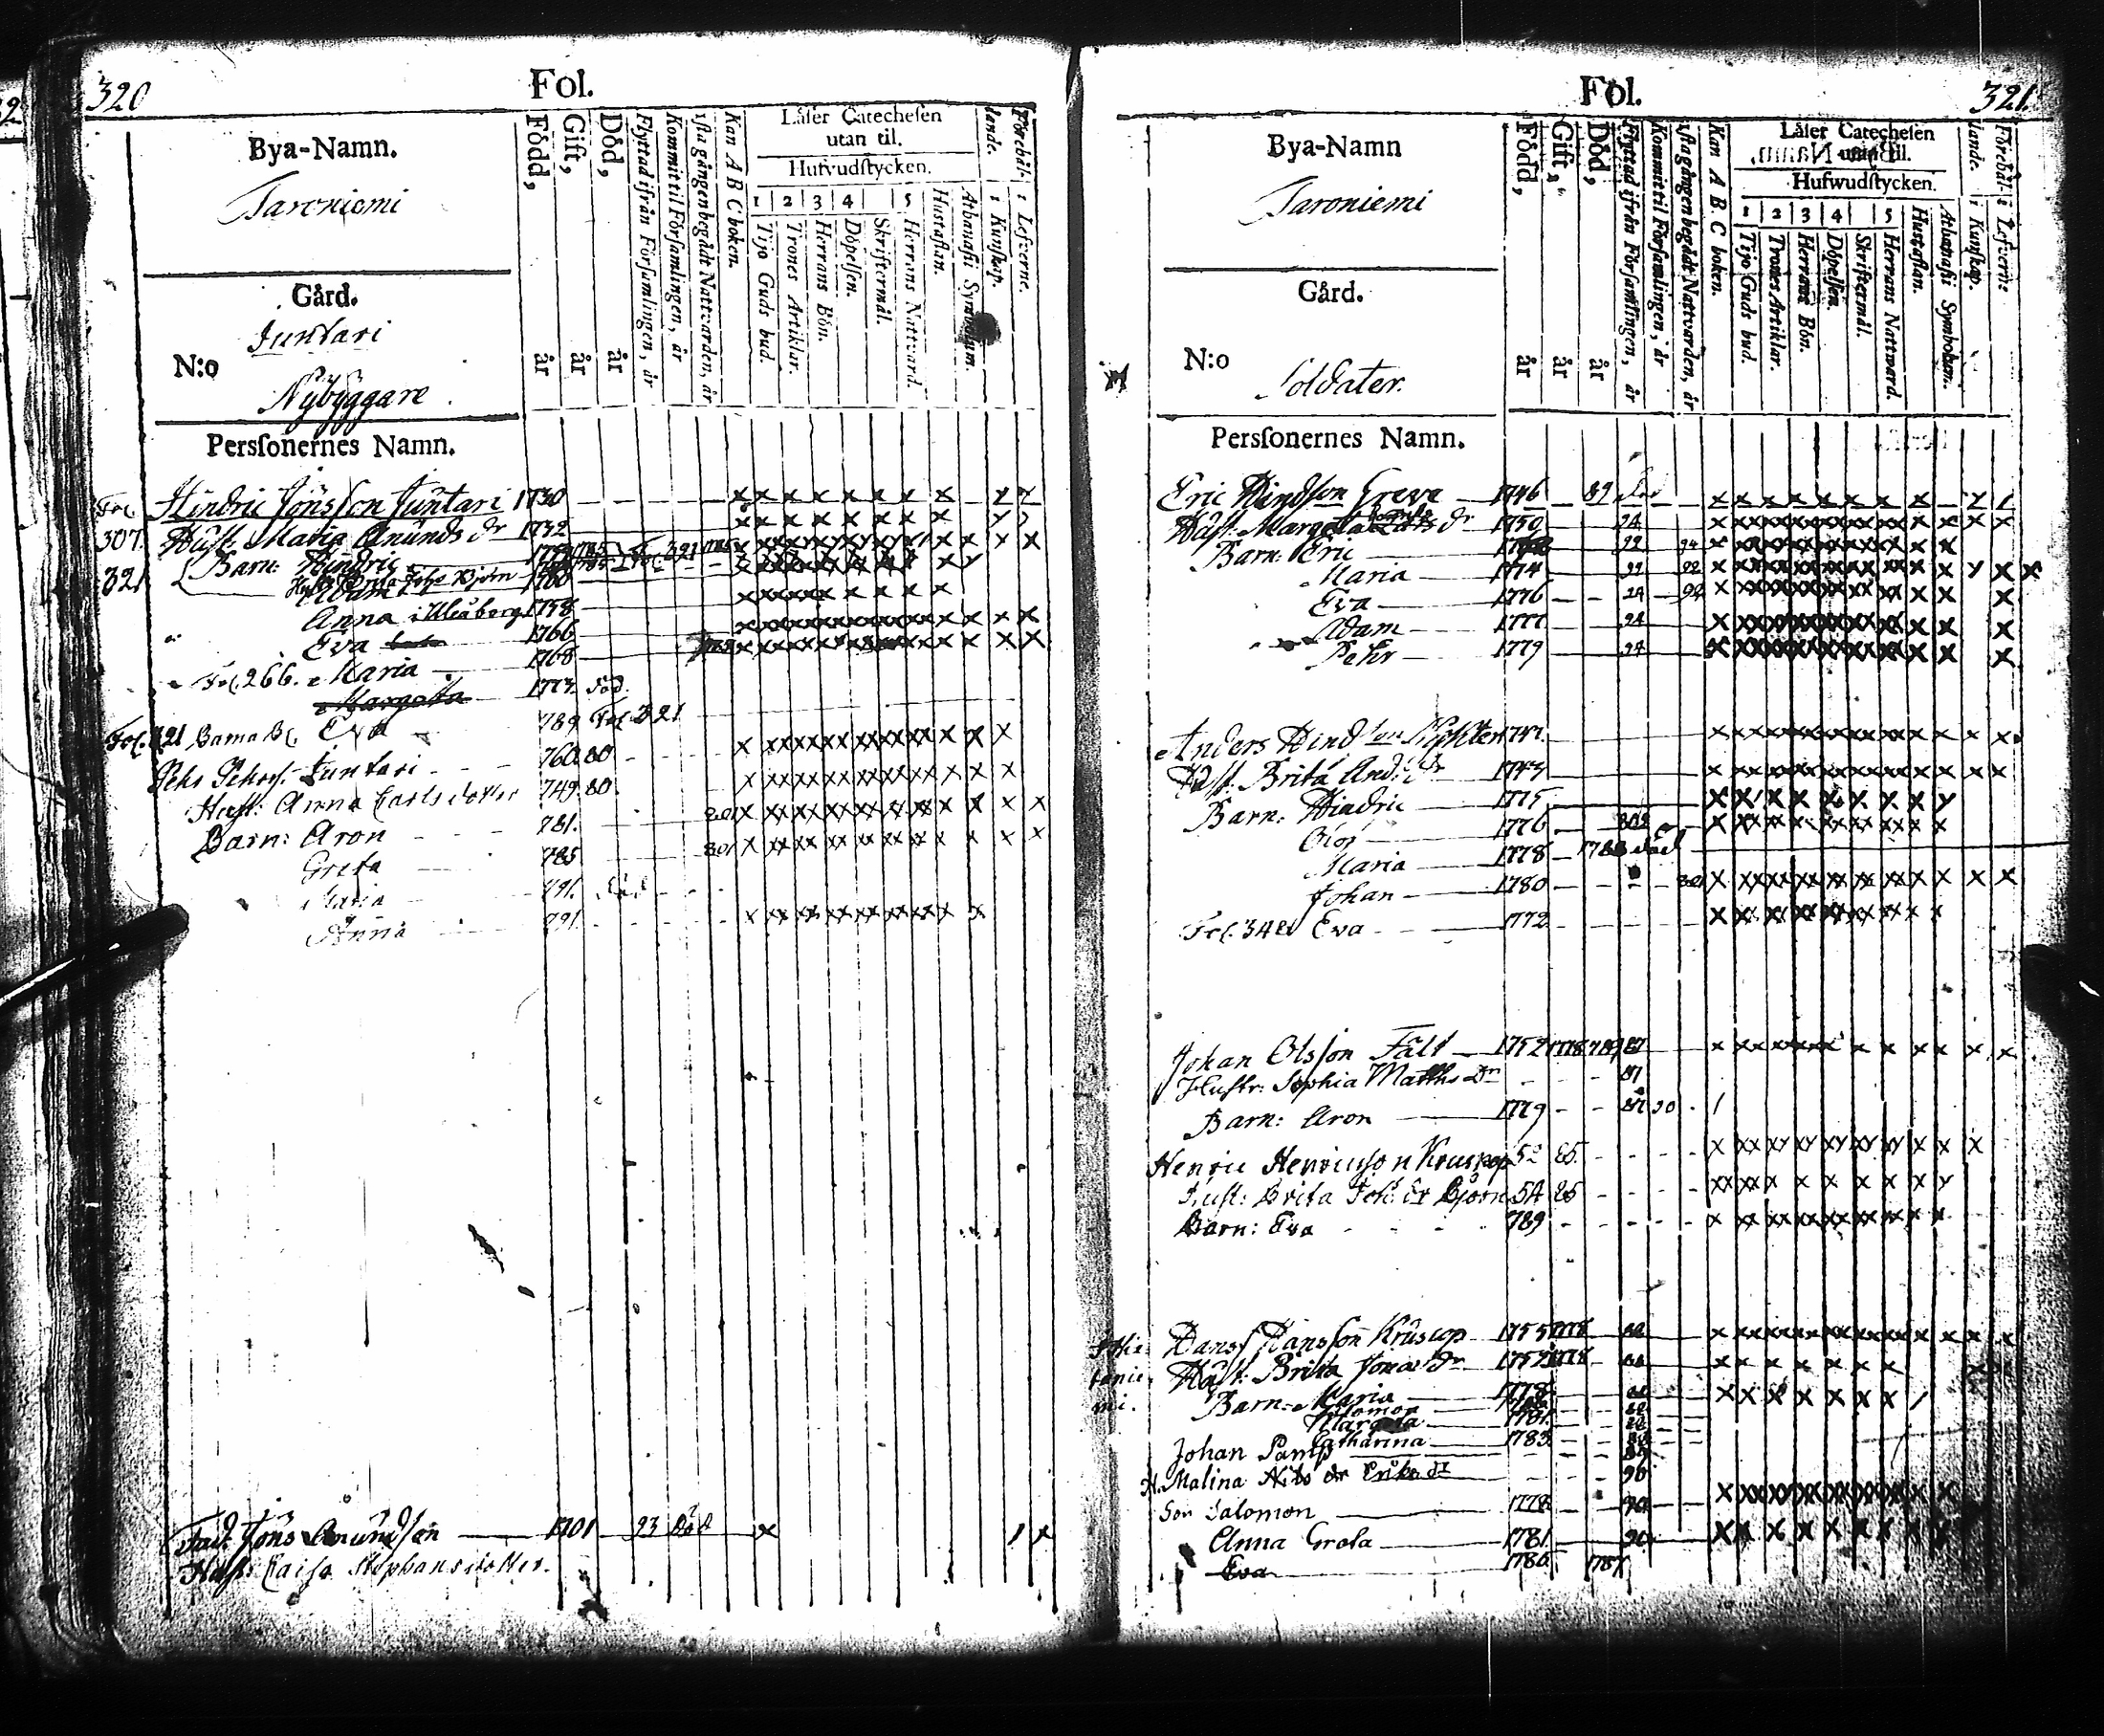 320
Fol.
Bya-Namn.
Taroniemi
Gård.
Juntari
N:o
Nybyggare
Personernes Namn.
Född, år
Gift, år
Död, år
Flyttad ifrån Församlingen, år
Kommit til Församlingen, år
första gången begådt Nattvarden, år
Kan A B C boken.
Låser Catechesen utan til.
Hufvudstycken.
1 2 3 4 5
Tijo Guds bud.
Trones Artiklar.
Herrans Bön.
Döpelsen.
Skriftermål.
Herrans Nattvard.
Hustaflan.
Athanasii Symbolum.
Förehållande.
i Kunskap.
i Lefverne.
Fol. Hindric Jönsson Juntari 1730
307. Hust. Maria Anunds dr 1732
321 Barn: Hindric Fol. 321
Adam 1760
Anna i Uleåborg 1758
Eva 1766
Fol. 266. Maria 1768
Margeta 1773 död.
Fol. 321 Barna B. Eva 789 Fol. 321
Pehr Pehrs. Juntari 760 80
Hust: Anna Carlsdotter 749 80
Barn: Aron 781. 801
Greta 785 801
Maria 791. död
Anna 791.
Jöns Anundson 1701 23 död
Hust: Caisa Stephansdotter.
Fol.
321.
Bya-Namn
Taroniemi
Gård.
N:o
Soldater.
Personernes Namn.
Född, år
Gift, år
Död, år
Flyttad ifrån Församlingen, år
Kommit til Församlingen, år
första gången begådt Nattvarden, år
Kan A B C boken.
Låser Catechesen utan til.
Hufwudstycken.
1 2 3 4 5
Tijo Guds bud.
Trones Artiklar.
Herrans Bön.
Döpelsen.
Skriftermål.
Herrans Nattward.
Hustaflan.
Athanasii Symbolum.
Förehållande.
i Kunskap.
i Lefverne
Eric Hindson Greve 1746 89 död
Hust. Margeta dr 1750 94
Barn: Eric
Maria 1774
Eva 1776 94
Adam 1777 94
Pehr 1779 94
Anders Hindson 1747.
Hust. Brita And: dr 1743
Barn: Hindric 1775
Olof 1776 802
Maria 1778 1788 död
Johan 1780
Fol. 348 Eva 1772
Johan Olsson Fält 1752 1778 789 87
Hustr: Sophia Matths dr 87
Barn: Aron 1779 87 90
Henric Henricsson Kruskop 52 85
Hust: Brita Joh: dr Björn 54 85
Barn: Eva 789
Hans Hansson Kruscop 1755 1778
Hust. Brita Jonæ dr 1752 1778
Barn: Maria 1778
Salomon
Margeta 1781
Catharina 1783
Johan Pamp
H. Malina Nils dr 90
Son Salomon 1778 90
Anna Greta 1781 90
Eva 1786 1787